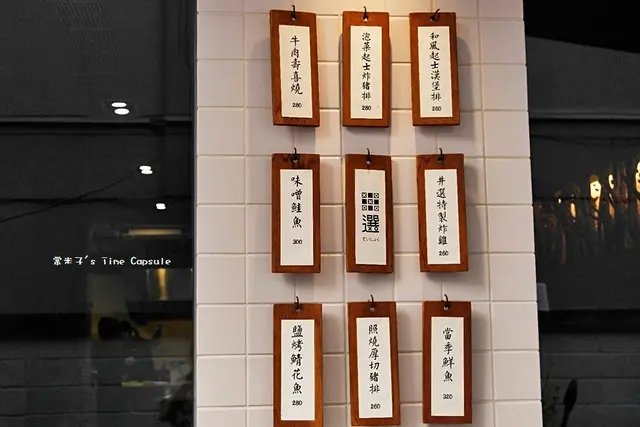 牛肉壽喜燒
280
泡菜起士炸豬排
280
和風起士漢堡排
260
味噌鮭魚
300
選
ていしょく
井選特製炸雞
260
鹽烤鯖花魚
280
照燒厚切豬排
260
當季鮮魚
320
棠米子's Time Capsule